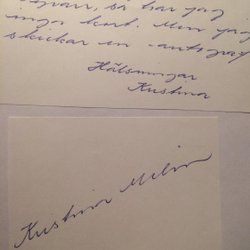 så har jag
inga kort. Men jag
skickar en autograf
Hälsningar
Kristina
Kristina